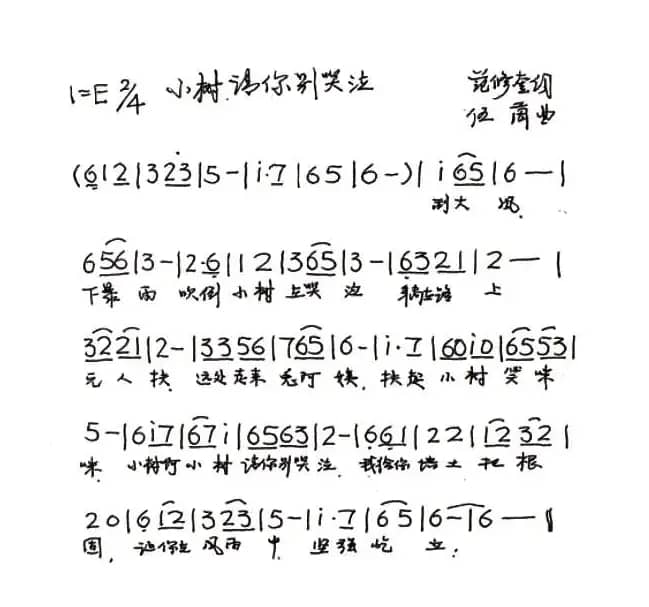 1=E 2/4 小树请你别哭泣 范修奎词
伍 曲
(6 1 2 | 3 2 3 | 5 - | i · 7 | 6 5 | 6 - ) | i 6 5 | 6 — |
刮大 风
6 5 6 | 3 - | 2 · 6 | 1 2 | 3 6 5 | 3 - | 6 3 2 1 | 2 — |
下暴 雨 吹倒 小树 在哭 泣 上
3 2 2 1 | 2 - | 3 3 5 6 | 7 6 5 | 6 - | i · 7 | 6 0 i 0 | 6 5 5 3 |
无 人 扶 远处走来 老阿 姨, 扶起 小树 笑 咪
5 - | 6 i 7 | 6 7 i | 6 5 6 3 | 2 - | 6 6 1 | 2 2 | 1 2 3 2 |
咪 小树啊小 树 请你别哭 泣, 我给你 培土 把 根
2 0 | 6 1 2 | 3 2 3 | 5 - | i · 7 | 6 5 | 6 - | 6 — ||
固, 让你在 风雨 中 坚强 屹 立;